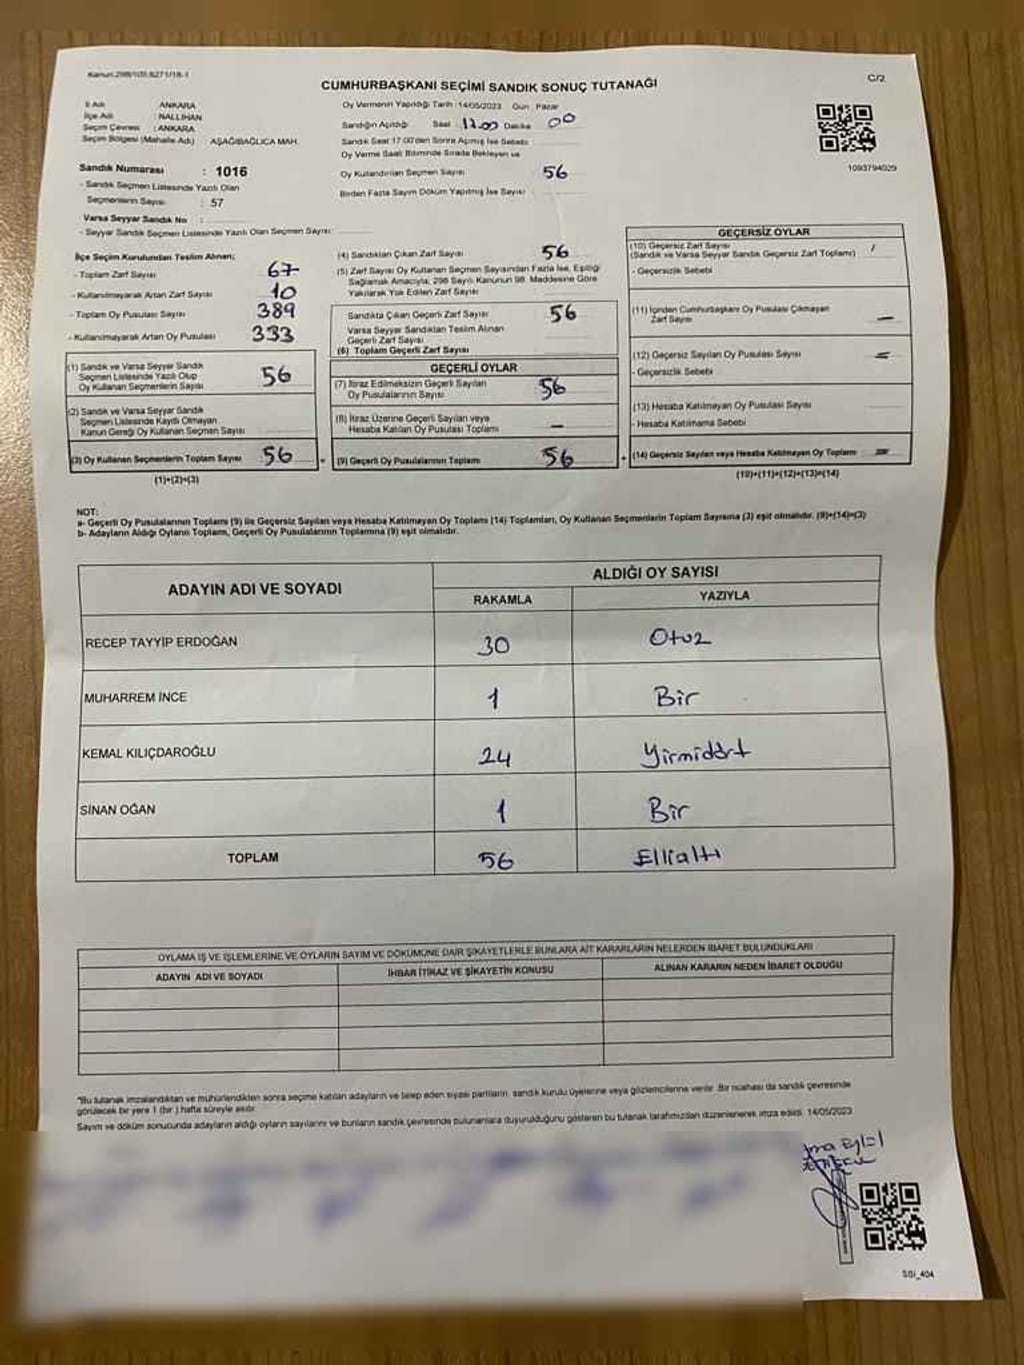 Kanun:298/105.6271/18-1
C/2
CUMHURBAŞKANI SEÇİMİ SANDIK SONUÇ TUTANAĞI
İl Adı : ANKARA
İlçe Adı : NALLIHAN
Seçim Çevresi : ANKARA
Seçim Bölgesi (Mahalle Adı) : AŞAĞIBAĞLICA MAH.
Oy Vermenin Yapıldığı Tarih :14/05/2023 Gün : Pazar
Sandığın Açıldığı Saat 17.00 Dakika 00
Sandık Saat 17:00'den Sonra Açılmış İse Sebebi
Oy Verme Saati Bitiminde Sırada Bekleyen ve
Oy Kullandırılan Seçmen Sayısı 56
Birden Fazla Sayım Döküm Yapılmış İse Sayısı
1093794029
Sandık Numarası : 1016
- Sandık Seçmen Listesinde Yazılı Olan
Seçmenlerin Sayısı : 57
Varsa Seyyar Sandık No :
- Seyyar Sandık Seçmen Listesinde Yazılı Olan Seçmen Sayısı:
İlçe Seçim Kurulundan Teslim Alınan;
- Toplam Zarf Sayısı 67
- Kullanılmayarak Artan Zarf Sayısı 10
- Toplam Oy Pusulası Sayısı 389
- Kullanılmayarak Artan Oy Pusulası 333
(1) Sandık ve Varsa Seyyar Sandık
Seçmen Listesinde Yazılı Olup
Oy Kullanan Seçmenlerin Sayısı 56
(2) Sandık ve Varsa Seyyar Sandık
Seçmen Listesinde Kaydı Olmayan
Kanun Gereği Oy Kullanan Seçmen Sayısı
(3) Oy Kullanan Seçmenlerin Toplam Sayısı 56
(1)+(2)=(3)
(4) Sandıktan Çıkan Zarf Sayısı 56
(5) Zarf Sayısı Oy Kullanan Seçmen Sayısından Fazla İse, Eşitliği
Sağlamak Amacıyla, 298 Sayılı Kanunun 98. Maddesine Göre
Yakılarak Yok Edilen Zarf Sayısı
Sandıkta Çıkan Geçerli Zarf Sayısı 56
Varsa Seyyar Sandıktan Teslim Alınan
Geçerli Zarf Sayısı
(6) Toplam Geçerli Zarf Sayısı
GEÇERLİ OYLAR
(7) İtiraz Edilmeksizin Geçerli Sayılan
Oy Pusulalarının Sayısı 56
(8) İtiraz Üzerine Geçerli Sayılan veya
Hesaba Katılan Oy Pusulası Toplamı –
(9) Geçerli Oy Pusulalarının Toplamı 56
GEÇERSİZ OYLAR
(10) Geçersiz Zarf Sayısı
(Sandık ve Varsa Seyyar Sandık Geçersiz Zarf Toplamı) /
- Geçersizlik Sebebi
(11) İçinden Cumhurbaşkanı Oy Pusulası Çıkmayan
Zarf Sayısı –
(12) Geçersiz Sayılan Oy Pusulası Sayısı
- Geçersizlik Sebebi
(13) Hesaba Katılmayan Oy Pusulası Sayısı
- Hesaba Katılmama Sebebi
(14) Geçersiz Sayılan veya Hesaba Katılmayan Oy Toplamı
(10)+(11)+(12)+(13)=(14)
NOT:
a- Geçerli Oy Pusulalarının Toplamı (9) ile Geçersiz Sayılan veya Hesaba Katılmayan Oy Toplamı (14) Toplamları, Oy Kullanan Seçmenlerin Toplam Sayısına (3) eşit olmalıdır. (9)+(14)=(3)
b- Adayların Aldığı Oyların Toplamı, Geçerli Oy Pusulalarının Toplamına (9) eşit olmalıdır.
ADAYIN ADI VE SOYADI
ALDIĞI OY SAYISI
RAKAMLA YAZIYLA
RECEP TAYYİP ERDOĞAN 30 Otuz
MUHARREM İNCE 1 Bir
KEMAL KILIÇDAROĞLU 24 Yirmidört
SİNAN OĞAN 1 Bir
TOPLAM 56 Ellialtı
OYLAMA İŞ VE İŞLEMLERİNE VE OYLARIN SAYIM VE DÖKÜMÜNE DAİR ŞİKAYETLERLE BUNLARA AİT KARARLARIN NELERDEN İBARET BULUNDUKLARI
ADAYIN ADI VE SOYADI İHBAR İTİRAZ VE ŞİKAYETİN KONUSU ALINAN KARARIN NEDEN İBARET OLDUĞU
"Bu tutanak imzalandıktan ve mühürlendikten sonra seçime katılan adayların ve talep eden siyasi partilerin, sandık kurulu üyelerine veya gözlemcilerine verilir. Bir nüshası da sandık çevresinde
görülecek bir yere 1 (bir ) hafta süreyle asılır.
Sayım ve döküm sonucunda adayların aldığı oyların sayılarını ve bunların sandık çevresinde bulunanlara duyurulduğunu gösteren bu tutanak tarafımızdan düzenlenerek imza edildi. 14/05/2023